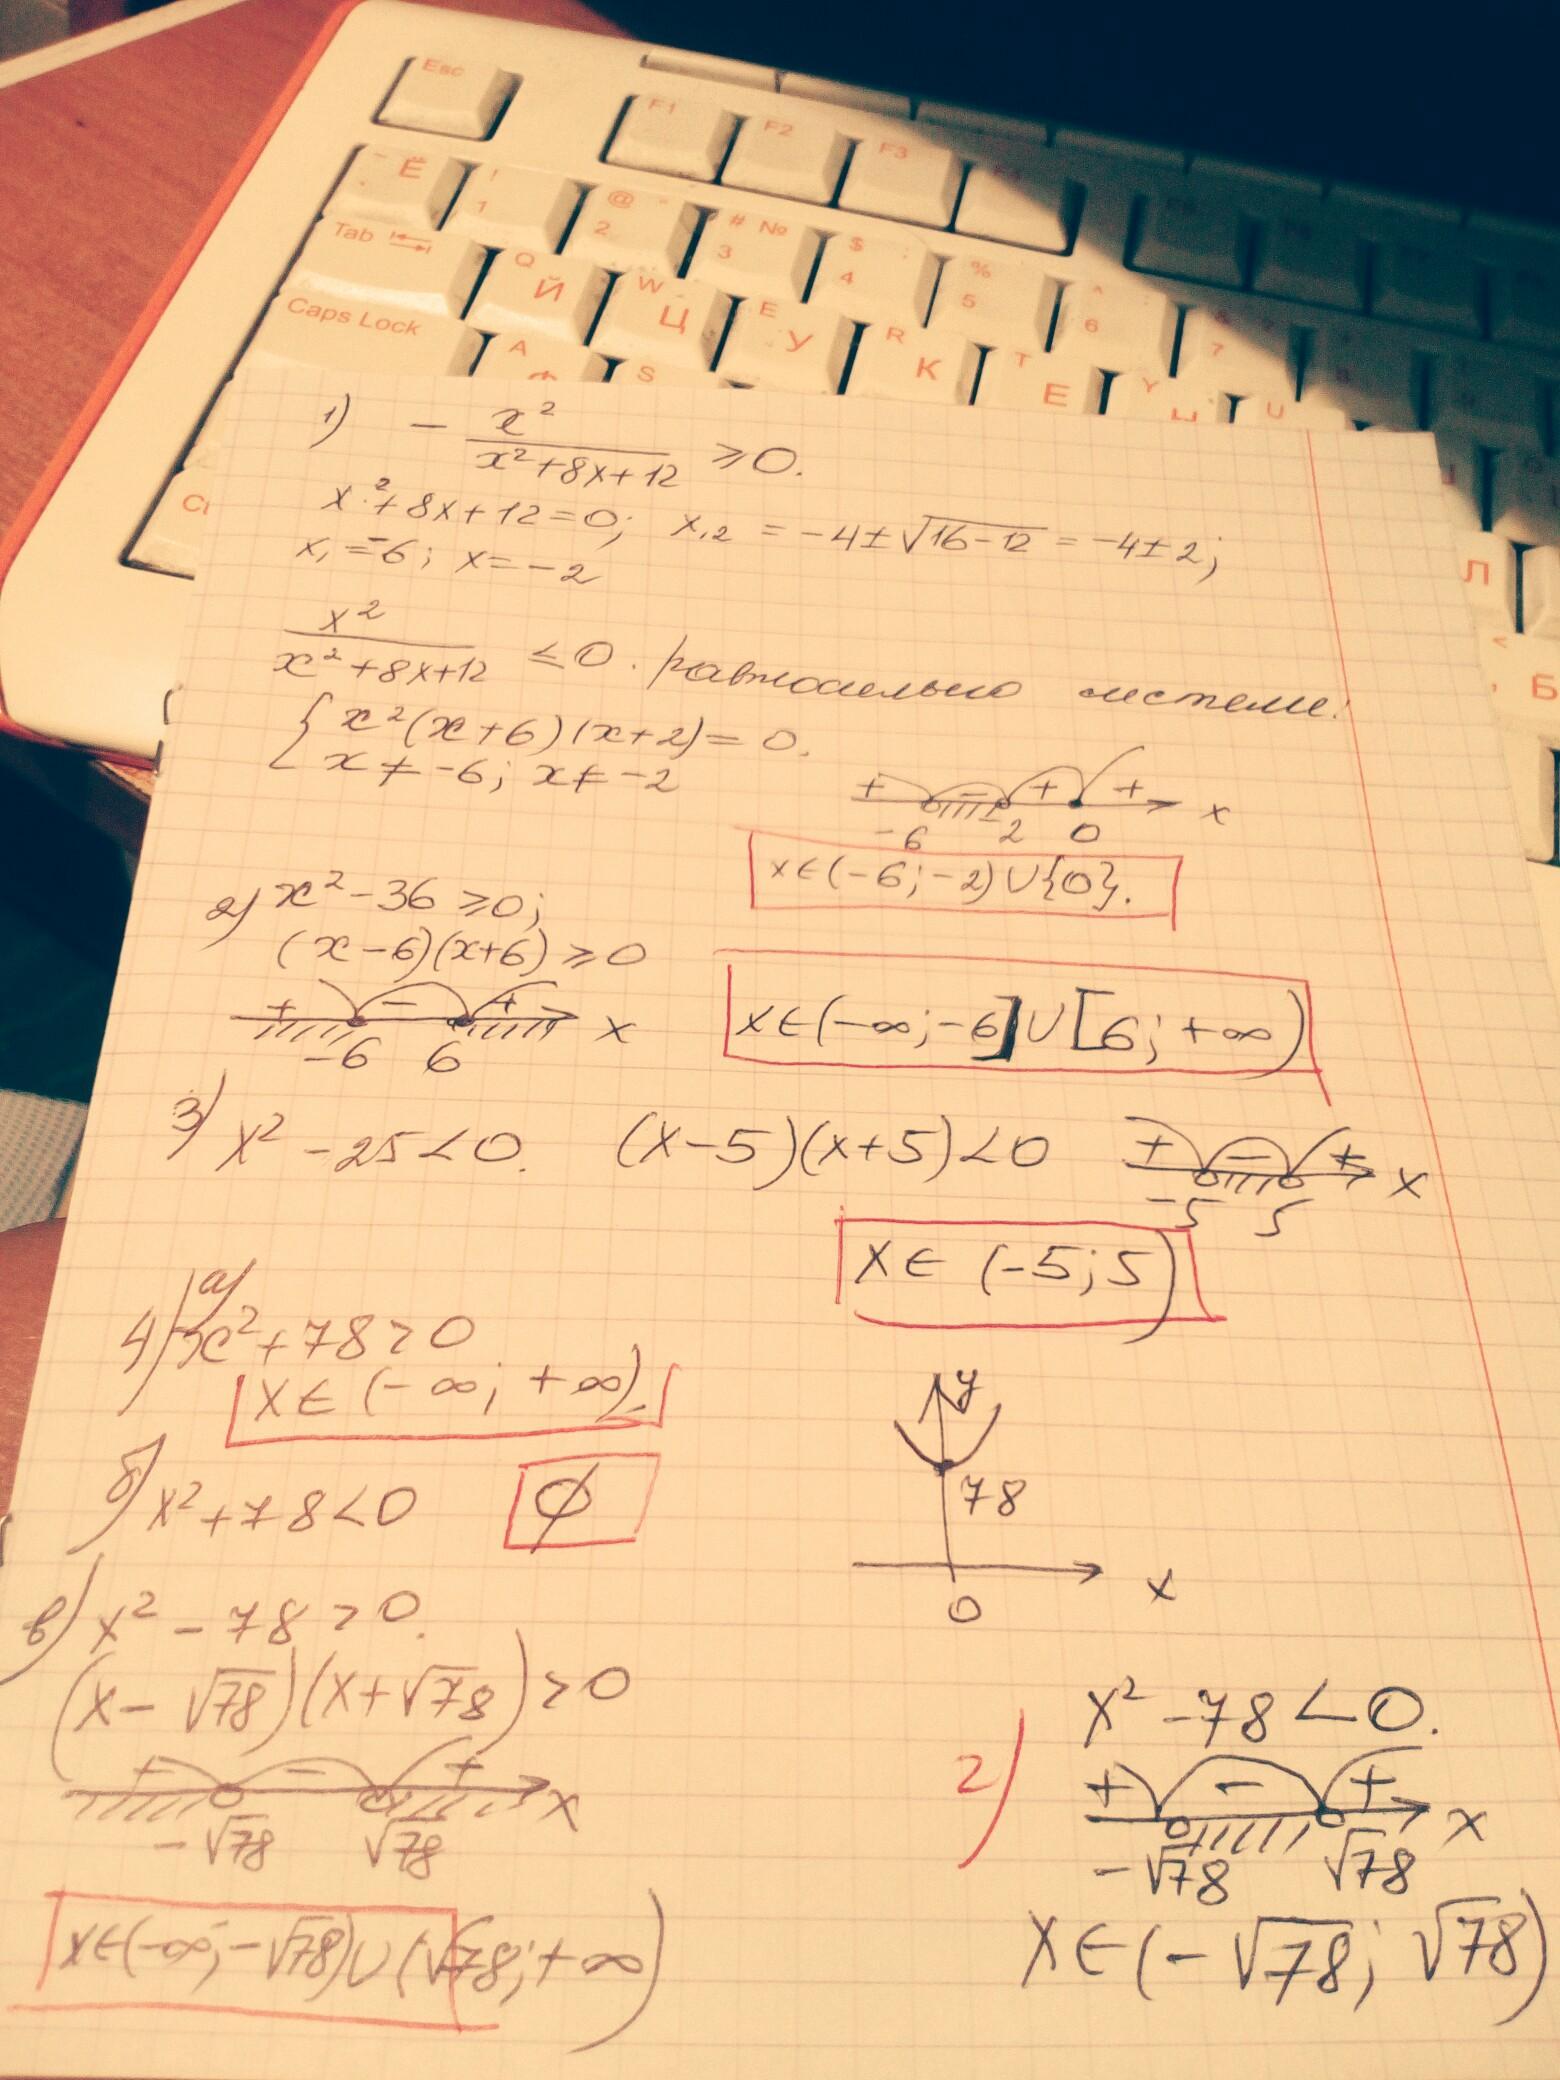 Esc
F1 F2 F3
Ё ! 1 @ " 2 # № 3 $ ; 4 % : 5 ^ 6 & 7
Tab Q Й W Ц E У R К T Е Y U
Caps Lock A S
Л
Б
1) - x²/(x²+8x+12) ≥ 0.
x²+8x+12=0; x₁,₂ = -4±√(16-12) = -4±2;
x₁=-6; x=-2
x²/(x²+8x+12) ≤ 0. равносильно системе:
{ x²(x+6)(x+2)=0.
x≠-6; x≠-2
+ - + + x
-6 -2 0
x∈(-6;-2)∪{0}.
2) x²-36≥0;
(x-6)(x+6)≥0
+ - + x
-6 6
x∈(-∞;-6]∪[6;+∞)
3) x²-25<0. (x-5)(x+5)<0
+ - + x
-5 5
x∈(-5;5)
4) а) x²+78>0
x∈(-∞;+∞).
y
78
x
0
б) x²+78<0 ∅
в) x²-78>0.
(x-√78)(x+√78)>0
+ - + x
-√78 √78
x∈(-∞;-√78)∪(√78;+∞)
г) x²-78<0.
+ - + x
-√78 √78
x∈(-√78;√78)